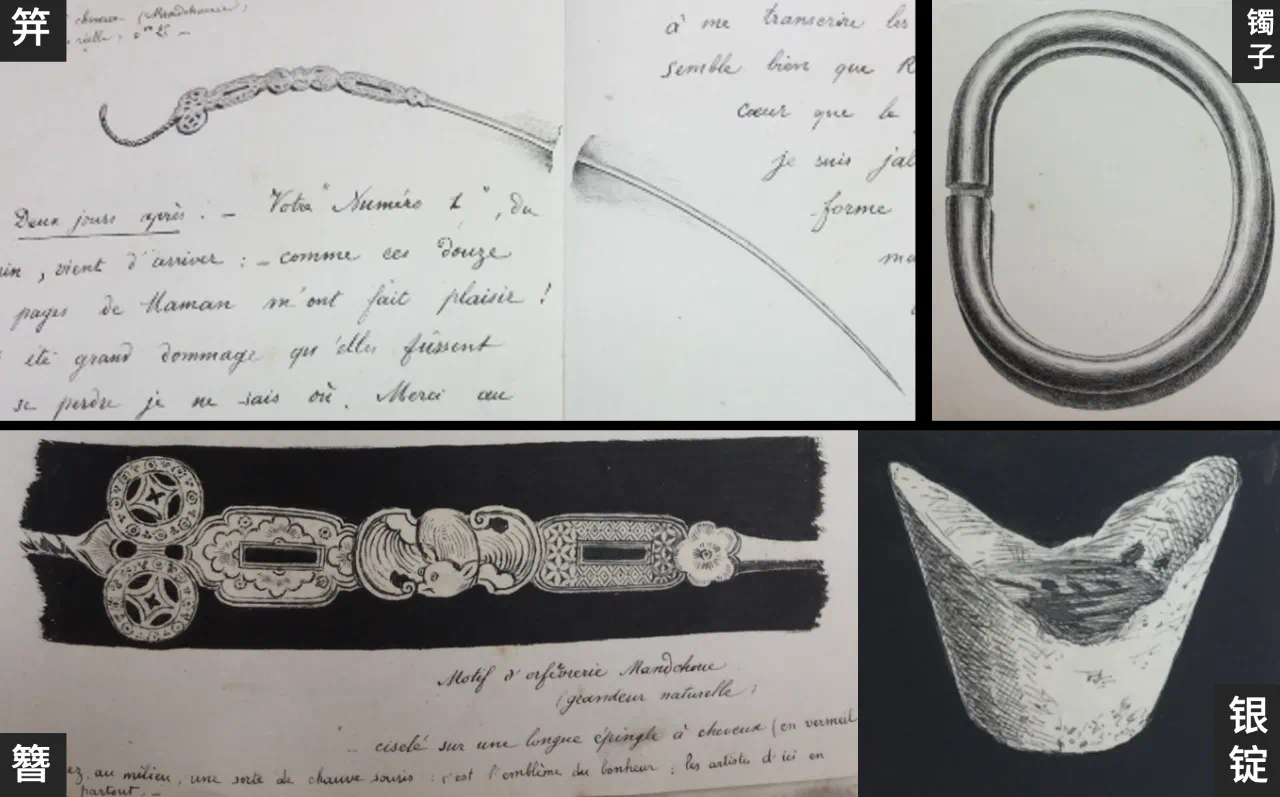 笄
cheveux (Mandchourie)
Deux jours après : – Votre "Numéro 1", du
, vient d'arriver : – comme ces douze
pages de Maman m'ont fait plaisir !
été grand dommage qu'elles fussent
se perdre je ne sais où. Merci au
à me transcrire les
semble bien que
cœur que le
je suis
forme
镯子
Motif d'orfèvrerie Mandchoue
(grandeur naturelle)
ciselé sur une longue épingle à cheveux (en vermeil
au milieu, une sorte de chauve souris : c'est l'emblème du bonheur ; les artistes d'ici en
partout. –
簪
银锭